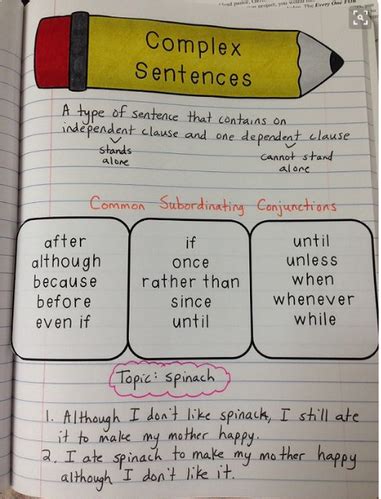 The Every One FOR
Complex
Sentences
A type of sentence that contains on
independent clause and one dependent clause
stands
alone
cannot stand
alone
Common Subordinating Conjunctions
after
although
because
before
even if
if
once
rather than
since
until
until
unless
when
whenever
while
Topic: spinach
1. Although I don't like spinach, I still ate
it to make my mother happy.
2. I ate spinach to make my mother happy
although I don't like it.